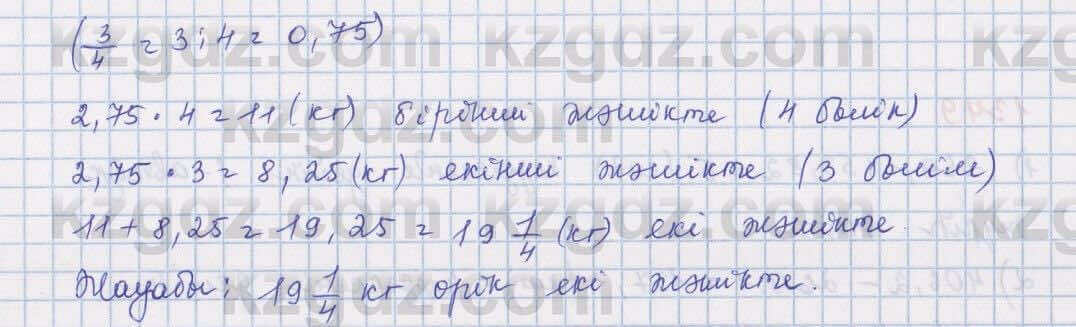 (3/4 = 3:4 = 0,75)
2,75 · 4 = 11 (кг) бірінші жәшікте (4 бөлік)
2,75 · 3 = 8,25 (кг) екінші жәшікте (3 бөлім)
11 + 8,25 = 19,25 = 19 1/4 (кг) екі жәшікте
Жауабы: 19 1/4 кг өрік екі жәшікте.